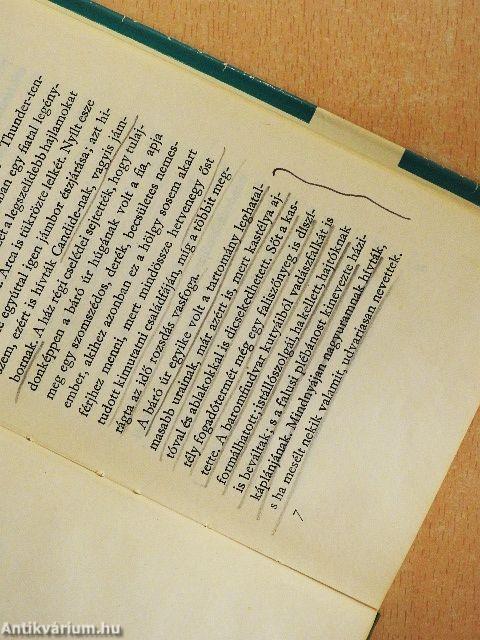 Thunder-ten-
an egy fiatal legény-
et a legszelídebb hajlamokat
Arca is tükrözte lelkét. Nyílt esze
e egyúttal igen jámbor észjárása; azt hi-
szem, ezért is hívták Candide-nak, vagyis jám-
bornak. A ház régi cselédei sejtették, hogy tulaj-
donképpen a báró úr húgának volt a fia, apja
meg egy szomszédos, derék, becsületes nemes-
ember, akihez azonban ez a hölgy sosem akart
férjhez menni, mert mindössze hetvenegy őst
tudott kimutatni családfáján, míg a többit meg-
rágta az idő rozsdás vasfoga.
A báró úr egyike volt a tartomány leghatal-
masabb urainak, már azért is, mert kastélya aj-
tóval és ablakokkal is dicsekedhetett. Sőt a kas-
tély fogadótermét még egy faliszőnyeg is díszí-
tette. A baromfiudvar kutyáiból vadászfalkát is
formálhatott; istállószolgái, ha kellett, hajtóknak
is beváltak; s a falusi plébánost kinevezte házi-
káplánjának. Mindnyájan nagyuramnak hívták,
s ha mesélt nekik valamit, udvariasan nevettek.
7
Antikvárium.hu